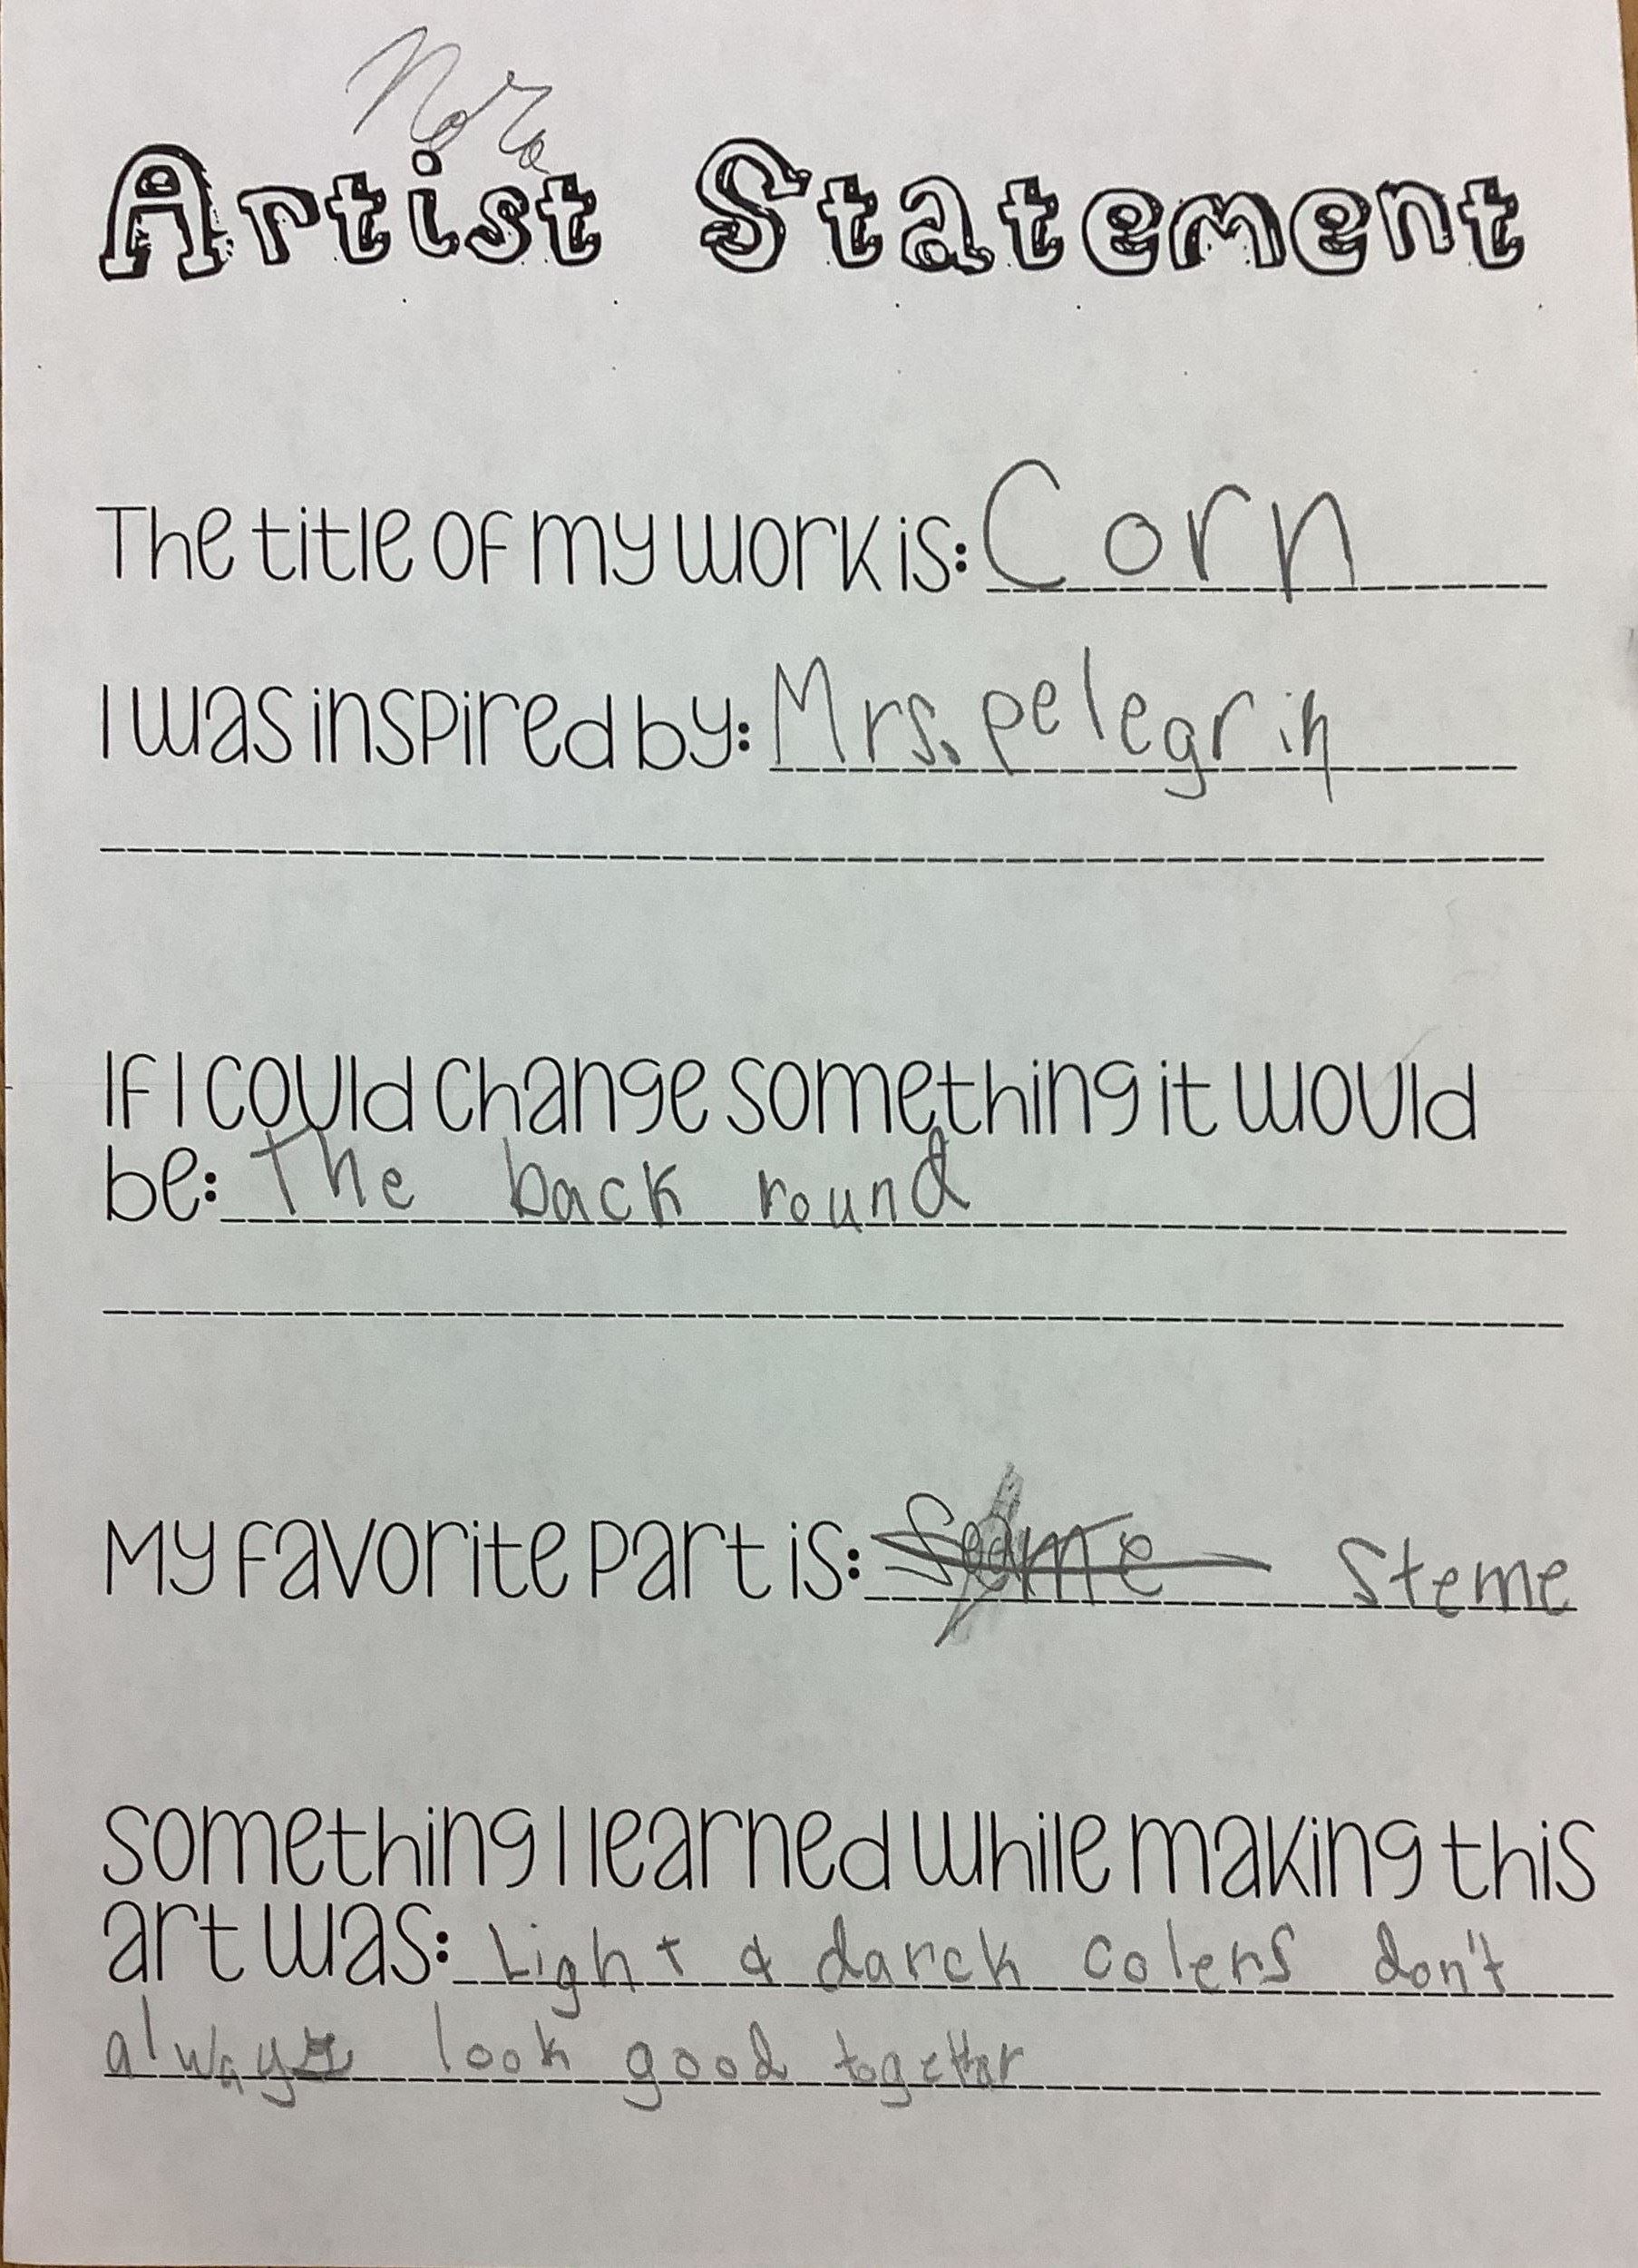 Nora
Artist Statement
The title of my work is: Corn
I was inspired by: Mrs. pelegrin
If I could change something it would
be: The back round
My favorite part is: Steme
Something I learned while making this
art was: Light & darck colers don't
always look good togethar